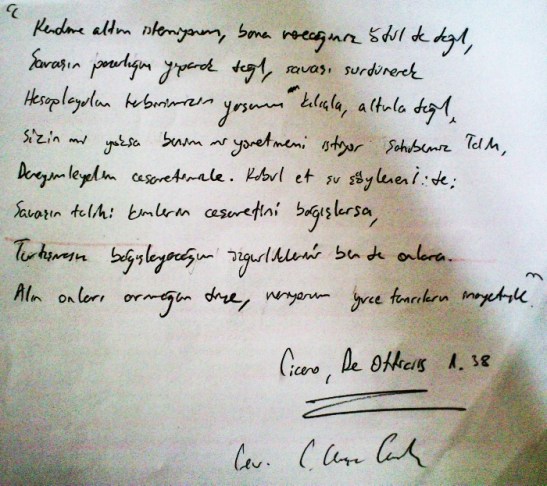 "Kendime altın istemiyorum, bana vereceğiniz ödül de değil,
Savaşın pazarlığını yaparak değil, savaşı sürdürerek
Hesaplayalım her birimizin yaşamını kılıçla, altınla değil,
Sizin mi yoksa benim mi yönetmemi istiyor Sahibemiz Talih,
Deneyimleyelim cesaretimizle. Kabul et şu söyleneni de:
Savaşın talihi kimlerin cesaretini bağışlarsa,
bağışlayacağım özgürlüklerini ben de onlara.
Alın onları armağan size, veriyorum yüce tanrıların inayetiyle."
Cicero, De Officiis 1.38
Çev. C.